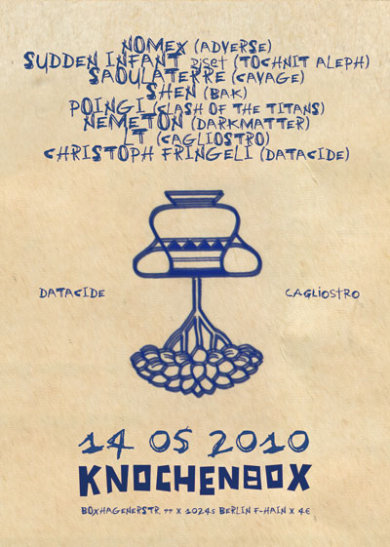 NOMEX (ADVERSE)
SUDDEN INFANT DJset (TOCHNIT ALEPH)
SAOULATERRE (CAVAGE)
SHEN (BAK)
POINGI (CLASH OF THE TITANS)
NEMETON (DARKMATTER)
LT (CAGLIOSTRO)
CHRISTOPH FRINGELI (DATACIDE)
DATACIDE
CAGLIOSTRO
14 05 2010
KNOCHENBOX
BOXHAGENERSTR. X 10245 BERLIN F-HAIN X 4€